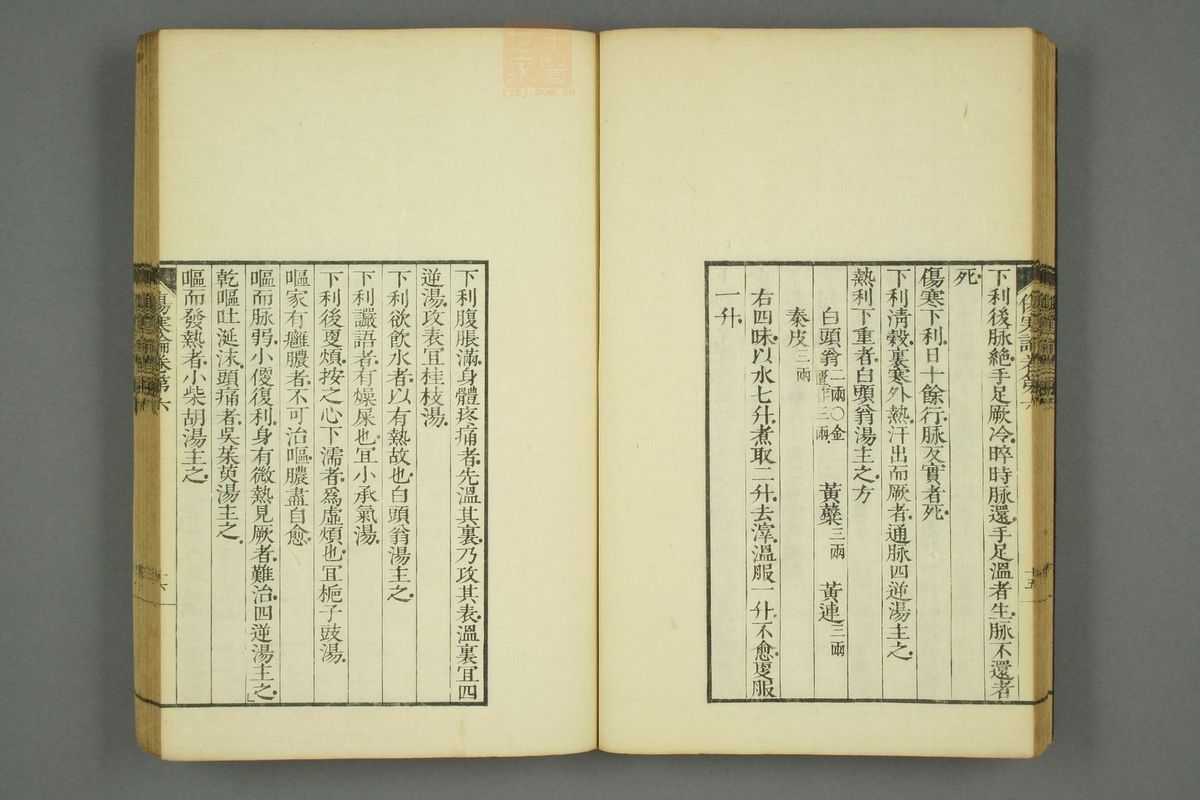 下利後脉絶手足厥冷晬時脉還手足溫者生脉不還者
死
傷寒下利日十餘行脉反實者死
下利淸穀裏寒外熱汗出而厥者通脉四逆湯主之
熱利下重者白頭翁湯主之方
白頭翁二兩〇金匱作三兩 黃蘗三兩 黃連三兩
秦皮三兩
右四味以水七升煮取二升去滓溫服一升不愈更服
一升
下利腹脹滿身體疼痛者先溫其裏乃攻其表溫裏宜四
逆湯攻表宜桂枝湯
下利欲飮水者以有熱故也白頭翁湯主之
下利讝語者有燥屎也宜小承氣湯
下利後更煩按之心下濡者爲虛煩也宜梔子豉湯
嘔家有癰膿者不可治嘔膿盡自愈
嘔而脉弱小便復利身有微熱見厥者難治四逆湯主之
乾嘔吐涎沫頭痛者吳茱萸湯主之
嘔而發熱者小柴胡湯主之
傷寒論卷第六
傷寒論卷第六
zysj.com.cn